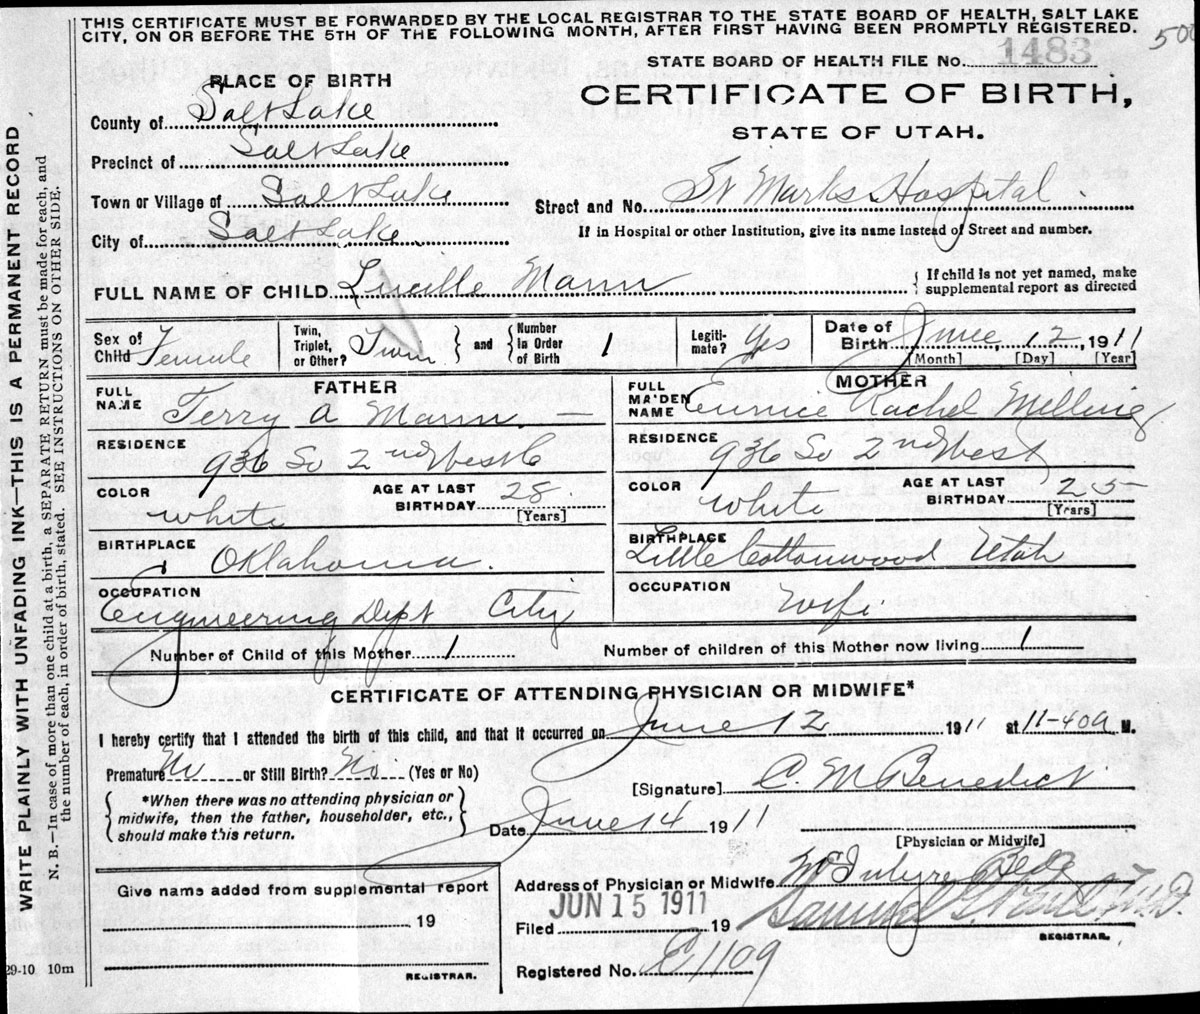 THIS CERTIFICATE MUST BE FORWARDED BY THE LOCAL REGISTRAR TO THE STATE BOARD OF HEALTH, SALT LAKE
CITY, ON OR BEFORE THE 5TH OF THE FOLLOWING MONTH, AFTER FIRST HAVING BEEN PROMPTLY REGISTERED.
WRITE PLAINLY WITH UNFADING INK—THIS IS A PERMANENT RECORD
N. B.—In case of more than one child at a birth, a SEPARATE RETURN must be made for each, and
the number of each, in order of birth, stated. SEE INSTRUCTIONS ON OTHER SIDE.
STATE BOARD OF HEALTH FILE No. 1483
CERTIFICATE OF BIRTH,
STATE OF UTAH.
PLACE OF BIRTH
County of Salt Lake
Precinct of Salt Lake
Town or Village of Salt Lake
City of Salt Lake
Street and No. St Marks Hospital
If in Hospital or other Institution, give its name instead of Street and number.
FULL NAME OF CHILD Lucille Mann
If child is not yet named, make
supplemental report as directed
Sex of Child Female
Twin, Triplet, or Other? Twin and Number in Order of Birth 1
Legitimate? Yes
Date of Birth June 12, 1911
[Month] [Day] [Year]
FATHER
FULL NAME Terry A Mann
RESIDENCE 936 So 2nd West
COLOR White
AGE AT LAST BIRTHDAY 28
[Years]
BIRTHPLACE Oklahoma.
OCCUPATION Engineering Dept City
MOTHER
FULL MAIDEN NAME Eunice Rachel
RESIDENCE 936 So 2nd West
COLOR White
AGE AT LAST BIRTHDAY 25
[Years]
BIRTHPLACE Little Cottonwood Utah
OCCUPATION Wife
Number of Child of this Mother 1
Number of children of this Mother now living 1
CERTIFICATE OF ATTENDING PHYSICIAN OR MIDWIFE*
I hereby certify that I attended the birth of this child, and that it occurred on June 12 1911 at 11-40a M.
Premature No or Still Birth? No (Yes or No)
*When there was no attending physician or
midwife, then the father, householder, etc.,
should make this return.
[Signature] C. M Benedict
Date June 14 1911
[Physician or Midwife]
Address of Physician or Midwife McIntyre Bldg
Give name added from supplemental report
19
REGISTRAR.
JUN 15 1911
Filed 19
Samuel G.
REGISTRAR.
Registered No. E1109
29-10 10m